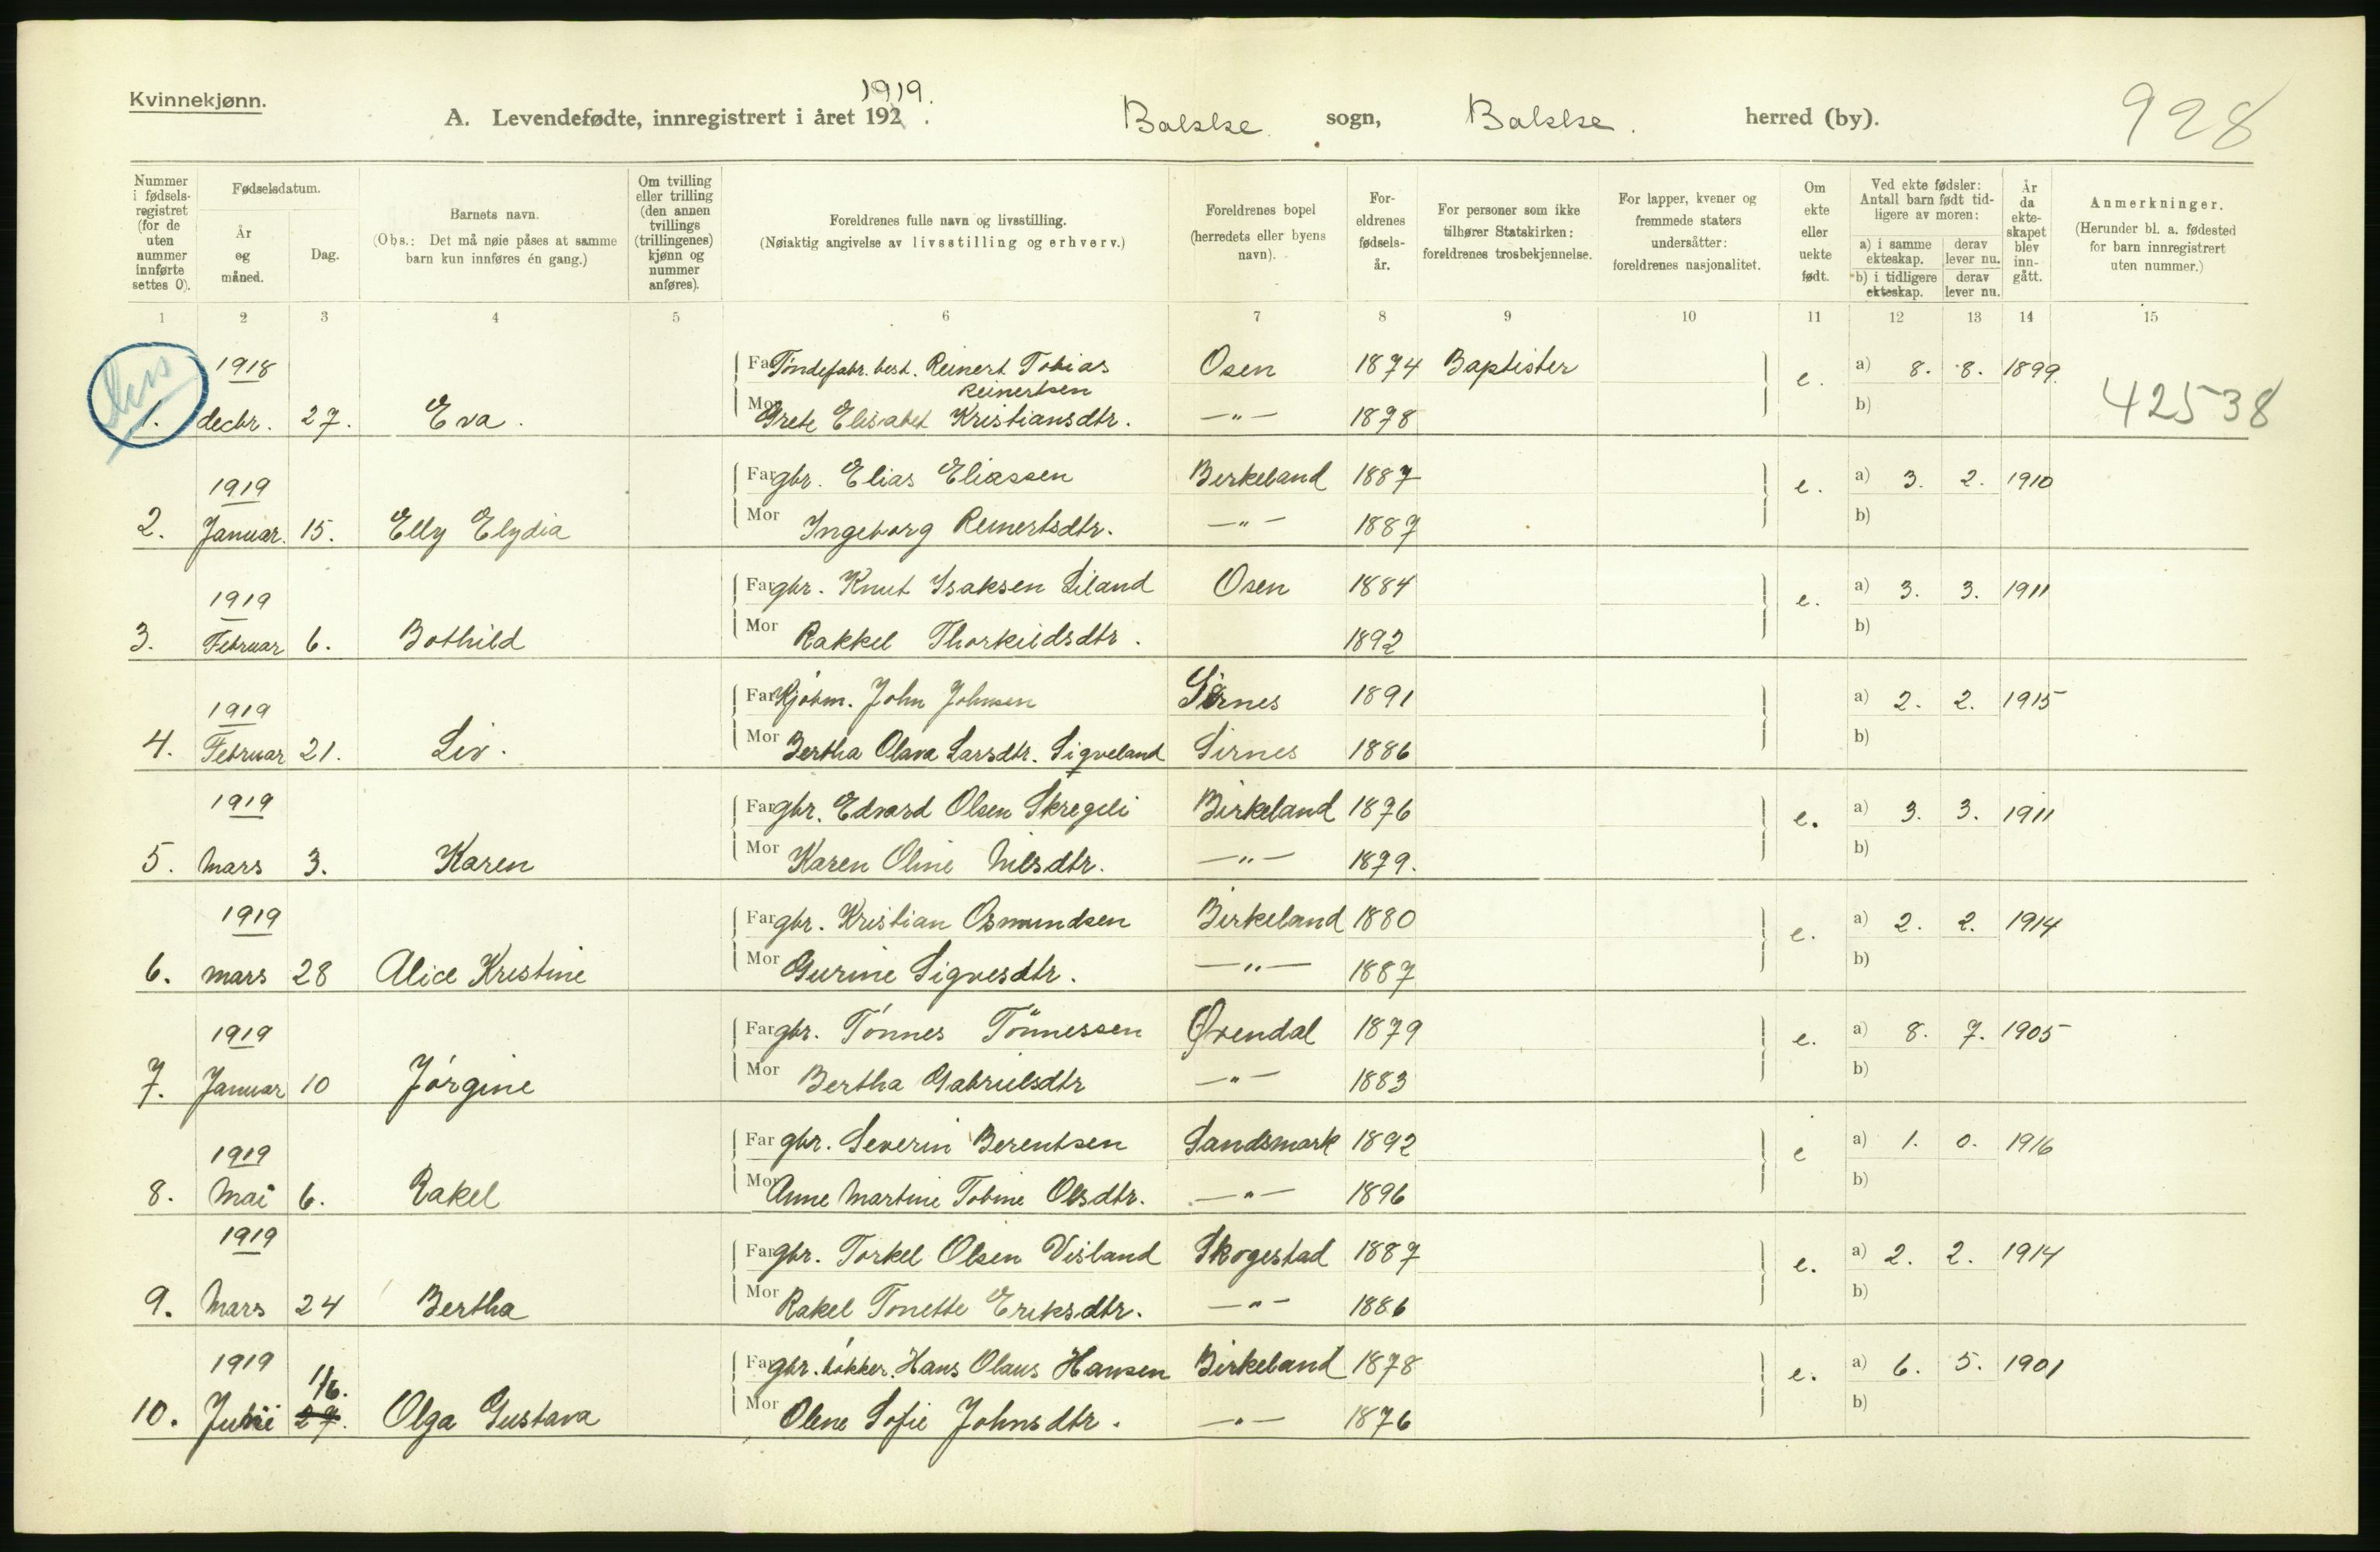 Kvinnekjønn.
1919.
A. Levendefødte, innregistrert i året 192 . Bakke sogn, Bakke. herred (by). 928
Nummer i fødsels-registret (for de uten nummer innførte settes 0).
Fødselsdatum.
År og måned.
Dag.
Barnets navn.
(Obs.: Det må nøie påses at samme barn kun innføres én gang.)
Om tvilling eller trilling (den annen tvillings (trillingenes) kjønn og nummer anføres).
Foreldrenes fulle navn og livsstilling.
(Nøiaktig angivelse av livsstilling og erhverv.)
Foreldrenes bopel (herredets eller byens navn).
For-eldrenes fødsels-år.
For personer som ikke tilhører Statskirken: foreldrenes trosbekjennelse.
For lapper, kvener og fremmede staters undersåtter: foreldrenes nasjonalitet.
Om ekte eller uekte født.
Ved ekte fødsler: Antall barn født tid-ligere av moren:
a) i samme ekteskap. derav lever nu.
b) i tidligere ekteskap. derav lever nu.
År da ekte-skapet blev inn-gått.
Anmerkninger.
(Herunder bl. a. fødested for barn innregistrert uten nummer.)
1 2 3 4 5 6 7 8 9 10 11 12 13 14 15
1918 Far Tøndefabr. best. Reinert Tobias Osen 1874 Baptister e. a) 8. 8. 1899.
Reinertsen
1. decbr. 27. Eva. Mor Grete Elisabet Kristiansdtr. —"— 1878 b) 42538
1919 Far gbr. Elias Eliassen Birkeland 1887 e. a) 3. 2. 1910
2. Januar. 15. Elly Elydia Mor Ingeborg Reinertsdtr. —"— 1887 b)
1919 Far gbr. Knut Isaksen Liland Osen 1884 e. a) 3. 3. 1911
3. Februar 6. Bothild Mor Rakkel Thorkildsdtr. 1892 b)
1919 Far Kjøbm. John Johnsen Sirnes 1891 a) 2. 2. 1915
4. Februar 21. Liv. Mor Bertha Olava Larsdtr. Sigveland Sirnes 1886 b)
1919 Far gbr. Edvard Olsen Skregeli Birkeland 1876 e. a) 3. 3. 1911
5. Mars 3. Karen Mor Karen Oline Nilsdtr. —"— 1879. b)
1919 Far gbr. Kristian Osmundsen Birkeland 1880 e. a) 2. 2. 1914
6. mars 28 Alice Kristine Mor Gurine Sigvesdtr. —"— 1887 b)
1919 Far gbr. Tönnes Tönnessen Øvendal 1879 e. a) 8. 7. 1905
7. Januar 10 Jörgine Mor Bertha Gabrielsdtr —"— 1883 b)
1919 Far gbr. Severin Berentsen Sandsmark 1892 e a) 1. 0. 1916
8. Mai 6. Rakel Mor Anne Martine Tobine Olsdtr. —"— 1896 b)
1919 Far gbr. Torkel Olsen Visland Skogestad 1887 e. a) 2. 2. 1914
9. Mars 24 Bertha Mor Rakel Tonette Eriksdtr. —"— 1886 b)
1919 1/6. Far gbr. bøkker. Hans Olaus Hansen Birkeland 1878 e. a) 6. 5. 1901
10. 27. Olga Gustava Mor Olene Sofie Johnsdtr. —"— 1876 b)